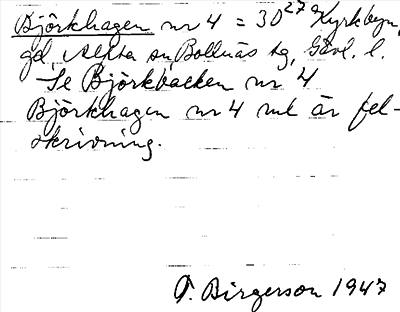 Björkhagen nr 4 = 30²⁷ Kyrkbyn,
gd, Alfta sn, Bollnäs tg, Gävl. l.
Se Björkbacken nr 4
Björkhagen nr 4 ml är fel-
skrivning.
F. Birgerson 1947